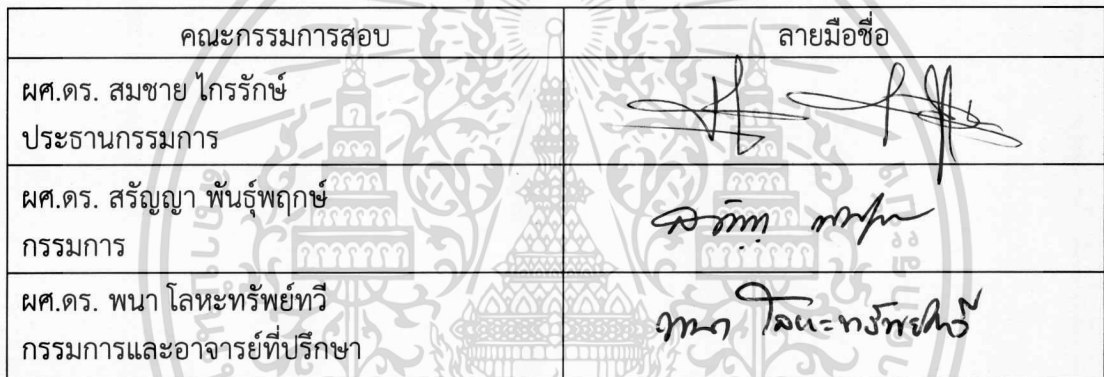 คณะกรรมการสอบ ลายมือชื่อ
ผศ.ดร. สมชาย ไกรรักษ์
ประธานกรรมการ
ผศ.ดร. สรัญญา พันธุ์พฤกษ์
กรรมการ
ผศ.ดร. พนา โลหะทรัพย์ทวี
กรรมการและอาจารย์ที่ปรึกษา
พนา โลหะทรัพย์ทวี